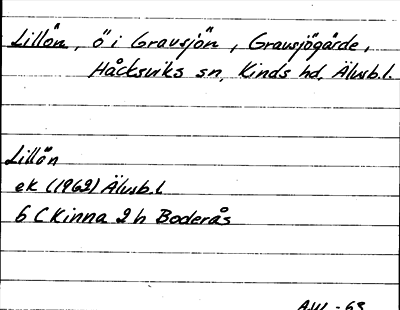 Lillön, ö i Gravsjön, Gravsjögårde,
Håcksviks sn, Kinds hd, Älvsb.l.
Lillön
ek (1962) Älvsb.l
6 C Kinna 2 h Boderås